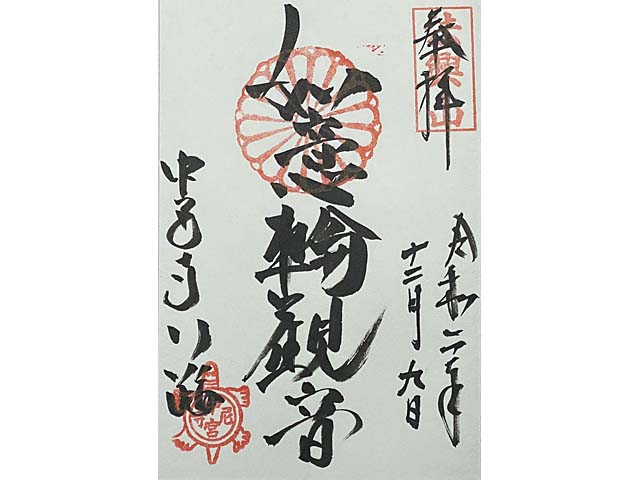 奉拝
法興山
令和二年
十二月九日
如意輪観音
中宮寺門跡